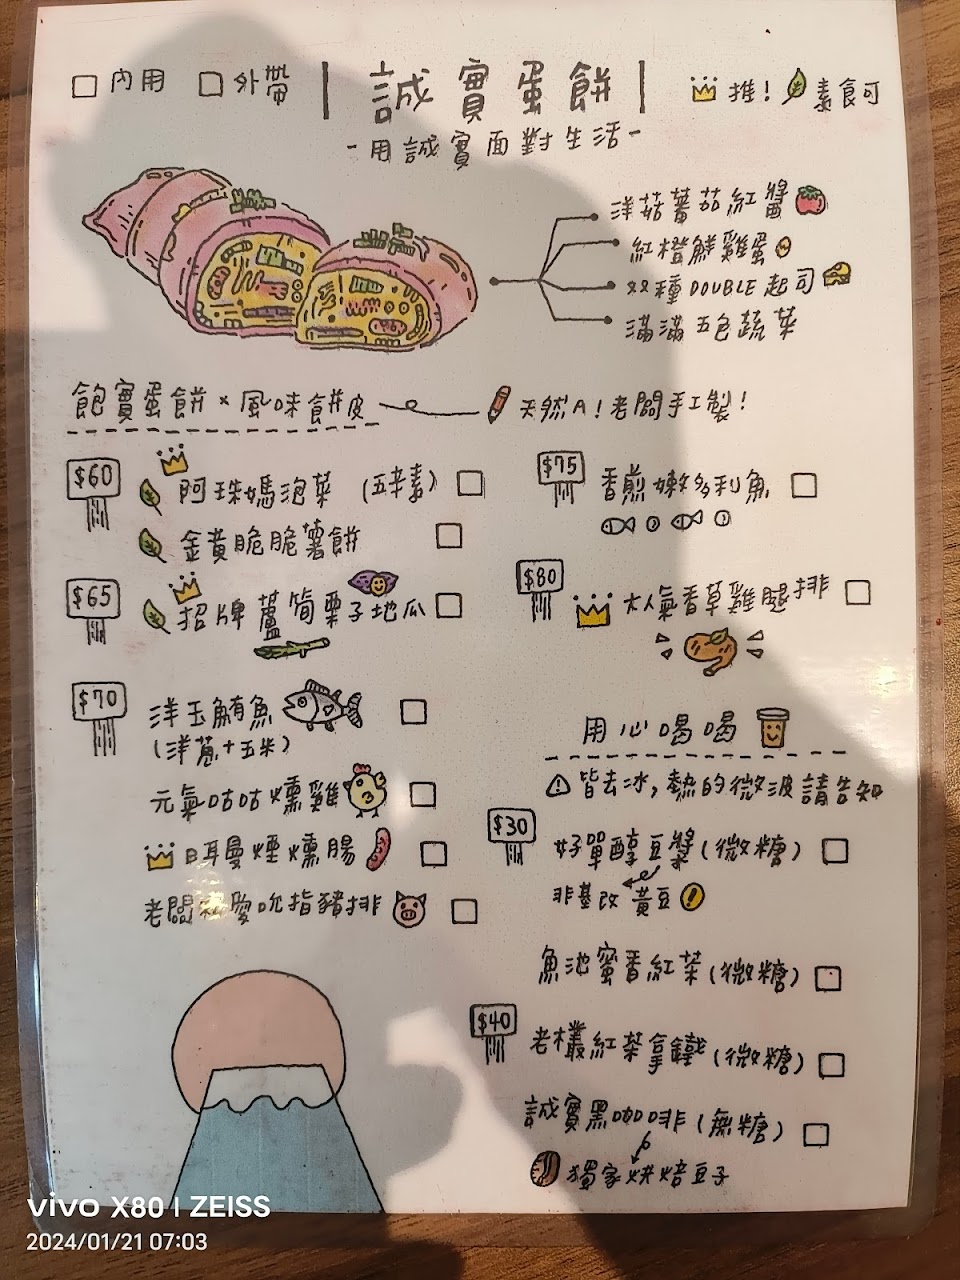 內用 外帶
誠實蛋餅
推! 素食可
-用誠實面對生活-
洋菇蕃茄紅醬
紅橙鮮雞蛋
双種DOUBLE起司
滿滿五色蔬菜
飽實蛋餅×風味餅皮
天然A!老闆手工製!
$60
阿珠媽泡菜 (五辛素)
金黃脆脆薯餅
$65
招牌蘆筍栗子地瓜
$70
洋玉鮪魚
(洋蔥+玉米)
元氣咕咕燻雞
日耳曼煙燻腸
老闆 愛吮指豬排
$75
香煎嫩多利魚
$80
大人氣香草雞腿排
用心喝喝
皆去冰,熱的微波請告知
$30
好單醇豆漿(微糖)
非基改黃豆
魚池蜜香紅茶(微糖)
$40
老欉紅茶拿鐵(微糖)
誠實黑咖啡(無糖)
獨家烘焙豆子
vivo X80 | ZEISS
2024/01/21 07:03